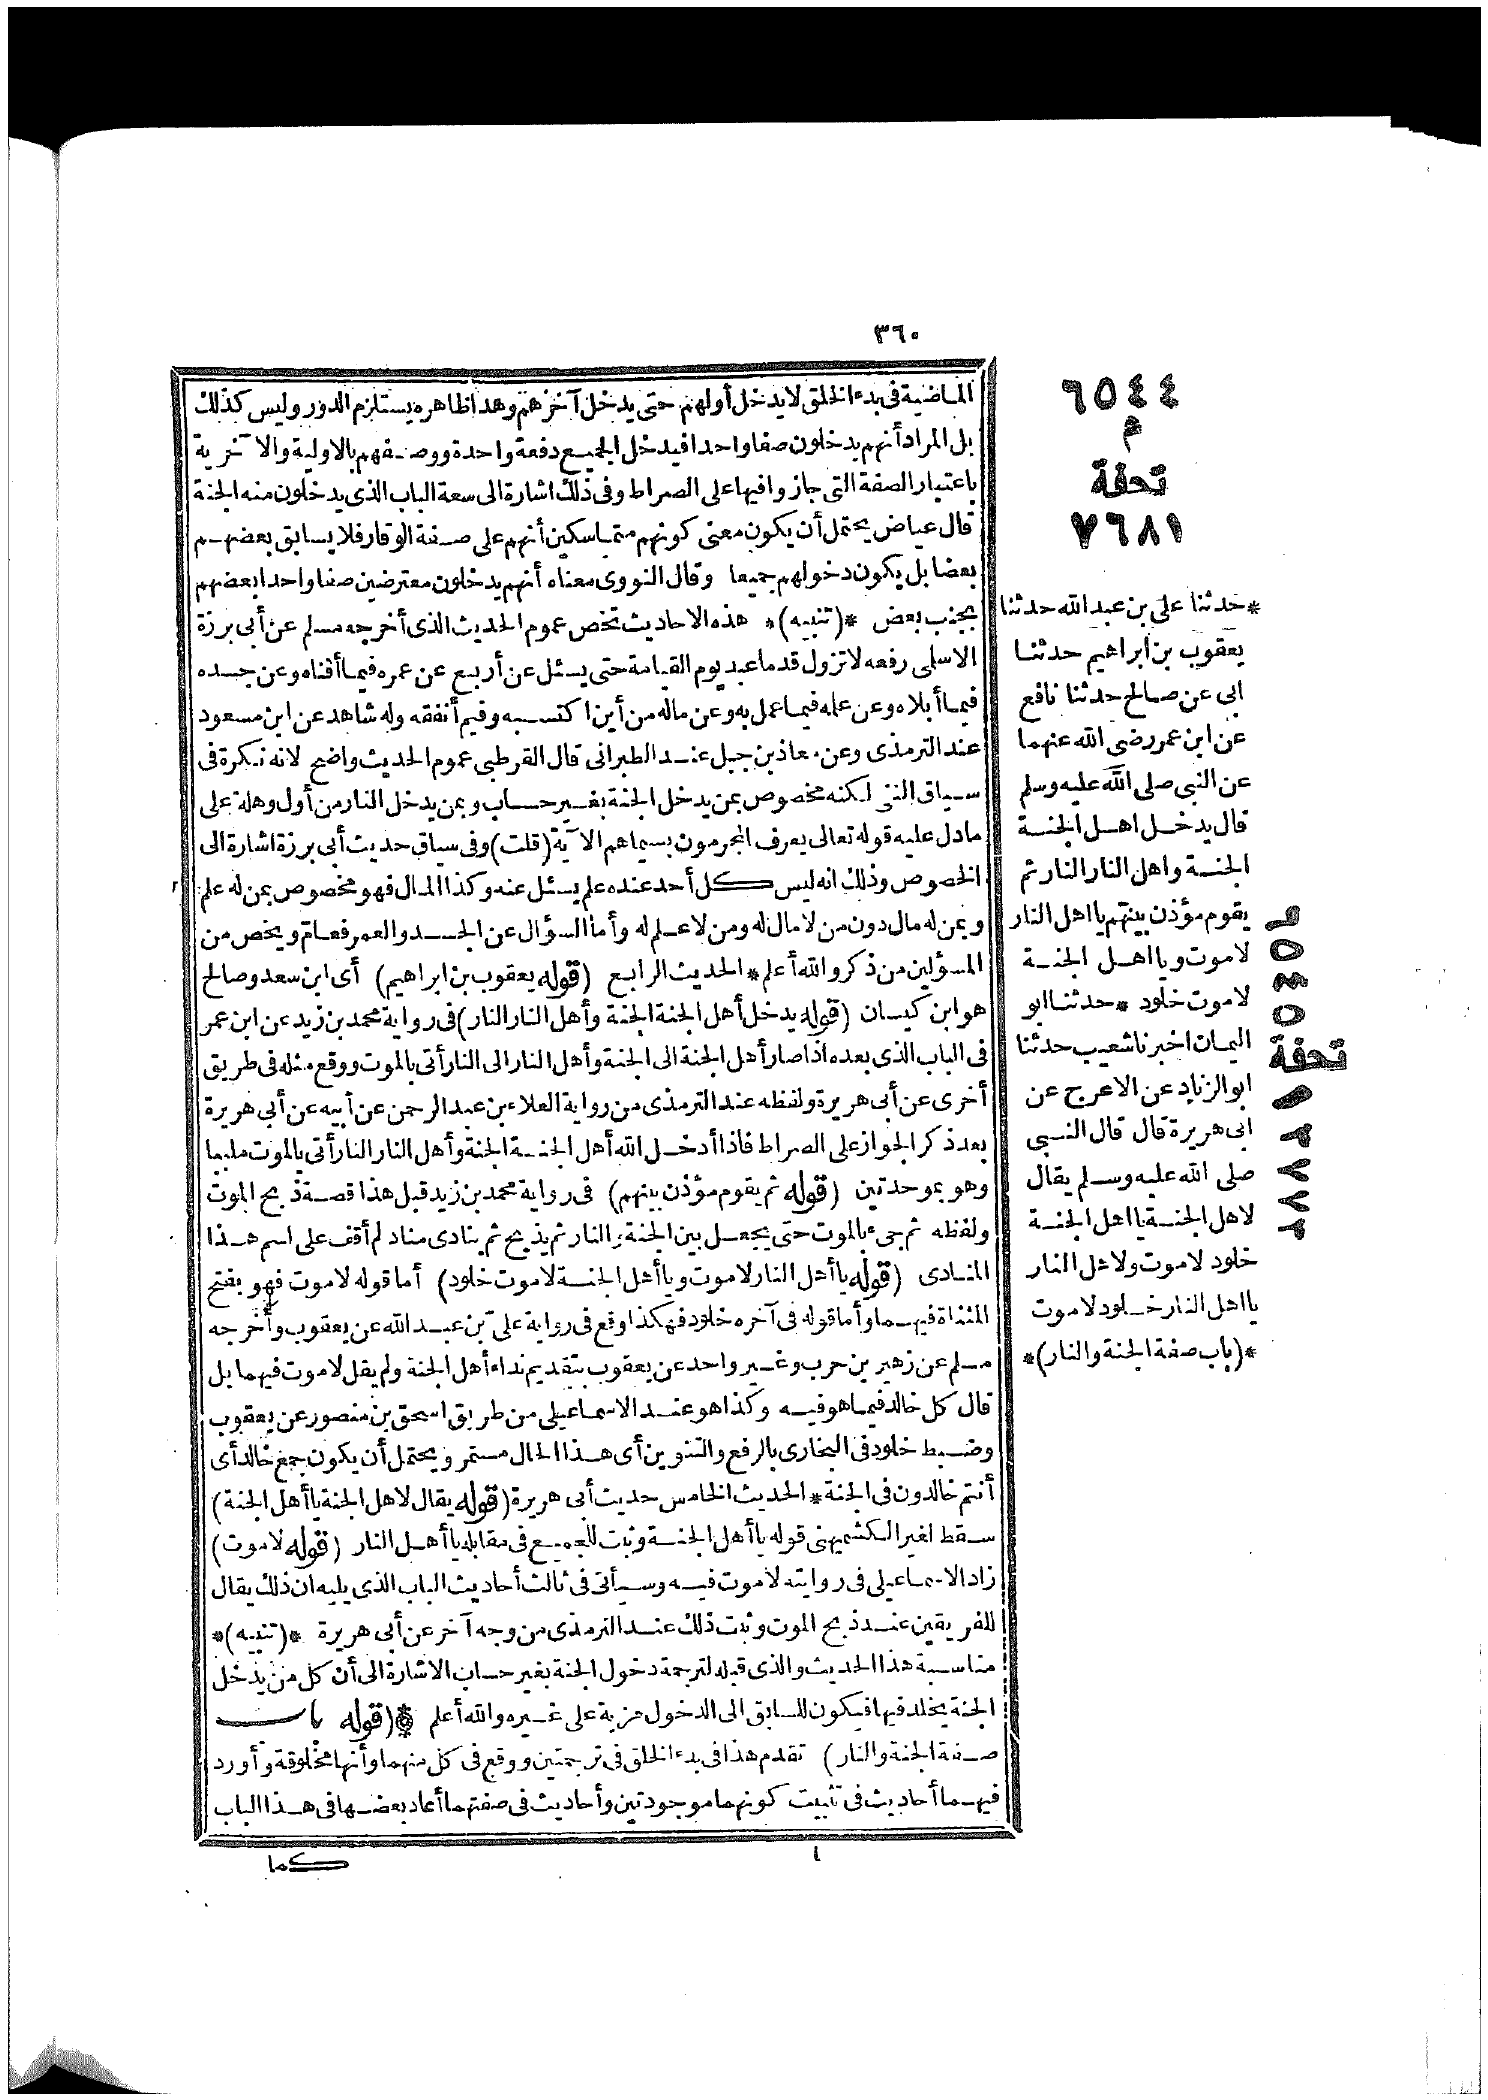 ٣٦٠
الماضية فى بدء الخلق لا يدخل أولهم حتى يدخل آخرهم وهذا ظاهره يستلزم الدور وليس كذلك
بل المراد أنهم يدخلون صفا واحدا فيدخل الجميع دفعة واحدة ووصفهم بالاولية والآخرية
باعتبار الصفة التى جازوا فيها على الصراط وفى ذلك اشارة الى سعة الباب الذى يدخلون منه الجنة
قال عياض يحتمل أن يكون معنى كونهم متماسكين أنهم على صفة الوقار فلا يسابق بعضهم
بعضا بل يكون دخولهم جميعا وقال النووى معناه أنهم يدخلون معترضين صفا واحدا بعضهم
بجنب بعض *(تنبيه)* هذه الاحاديث تخص عموم الحديث الذى أخرجه مسلم عن أبى برزة
الاسلمى رفعه لا تزول قدما عبد يوم القيامة حتى يسئل عن أربع عن عمره فيما أفناه وعن جسده
فيما أبلاه وعن علمه فيما عمل به وعن ماله من أين اكتسبه وفيم أنفقه وله شاهد عن ابن مسعود
عند الترمذى وعن معاذ بن جبل عند الطبرانى قال القرطبى عموم الحديث واضح لانه نكرة فى
سياق النفى لكنه مخصوص بمن يدخل الجنة بغير حساب وبمن يدخل النار من أول وهلة على
ما دل عليه قوله تعالى يعرف المجرمون بسيماهم الآية (قلت) وفى سياق حديث أبى برزة اشارة الى
الخصوص وذلك انه ليس كل أحد عنده علم يسئل عنه وكذا المال فهو مخصوص بمن له علم
وبمن له مال دون من لا مال له ومن لا علم له وأما السؤال عن الجسد والعمر فعام ويخص من
المسؤلين من ذكر والله أعلم * الحديث الرابع (قوله يعقوب بن ابراهيم) أى ابن سعد وصالح
هو ابن كيسان (قوله يدخل أهل الجنة الجنة وأهل النار النار) فى رواية محمد بن زيد عن ابن عمر
فى الباب الذى بعده اذا صار أهل الجنة الى الجنة وأهل النار الى النار أتى بالموت ووقع مثله فى طريق
أخرى عن أبى هريرة ولفظه عند الترمذى من رواية العلاء بن عبد الرحمن عن أبيه عن أبى هريرة
بعد ذكر الجواز على الصراط فاذا أدخل الله أهل الجنة الجنة وأهل النار النار أتى بالموت ملببا
وهو بموحدتين (قوله ثم يقوم مؤذن بينهم) فى رواية محمد بن زيد قبل هذا قصة ذبح الموت
ولفظه ثم جىء بالموت حتى يجعل بين الجنة والنار ثم يذبح ثم ينادى مناد لم أقف على اسم هذا
المنادى (قوله يا أهل النار لا موت ويا أهل الجنة لا موت خلود) أما قوله لا موت فهو بفتح
المثناة فيهما وأما قوله فى آخره خلود فهكذا وقع فى رواية على بن عبد الله عن يعقوب وأخرجه
مسلم عن زهير بن حرب وغير واحد عن يعقوب بتقديم نداء أهل الجنة ولم يقل لا موت فيهما بل
قال كل خالد فيما هو فيه وكذا هو عند الاسماعيلى من طريق اسحق بن منصور عن يعقوب
وضبط خلود فى البخارى بالرفع والتنوين أى هذا الحال مستمر ويحتمل أن يكون جمع خالد أى
أنتم خالدون فى الجنة * الحديث الخامس حديث أبى هريرة (قوله يقال لاهل الجنة يا أهل الجنة)
سقط لغير الكشميهنى قوله يا أهل الجنة وثبت للجميع فى مقابله يا أهل النار (قوله لا موت)
زاد الاسماعيلى فى روايته لا موت فيه وسيأتى فى ثالث أحاديث الباب الذى يليه ان ذلك يقال
للفريقين عند ذبح الموت وثبت ذلك عند الترمذى من وجه آخر عن أبى هريرة *(تنبيه)*
مناسبة هذا الحديث والذى قبله لترجمة دخول الجنة بغير حساب الاشارة الى أن كل من يدخل
الجنة يخلد فيها فيكون للسابق الى الدخول مزية على غيره والله أعلم (قوله باب
صفة الجنة والنار) تقدم هذا فى بدء الخلق فى ترجمتين ووقع فى كل منهما وأنها مخلوقة وأورد
فيهما أحاديث فى تثبيت كونهما موجودتين وأحاديث فى صفتهما أعاد بعضها فى هذا الباب
كما
٦٥٤٤
م
تحفة
٧٦٨١
* حدثنا على بن عبد الله حدثنا
يعقوب بن ابراهيم حدثنا
ابى عن صالح حدثنا نافع
عن ابن عمر رضى الله عنهما
عن النبى صلى الله عليه وسلم
قال يدخل اهل الجنة
الجنة واهل النار النار ثم
يقوم مؤذن بينهم يا اهل النار
لا موت ويا اهل الجنة
لا موت خلود * حدثنا ابو
اليمان اخبرنا شعيب حدثنا
ابو الزناد عن الاعرج عن
ابى هريرة قال قال النبى
صلى الله عليه وسلم يقال
لاهل الجنة يا اهل الجنة
خلود لا موت ولاهل النار
يا اهل النار خلود لا موت
*(باب صفة الجنة والنار)*
٦٥٤٥
تحفة
١٣٧٧٣